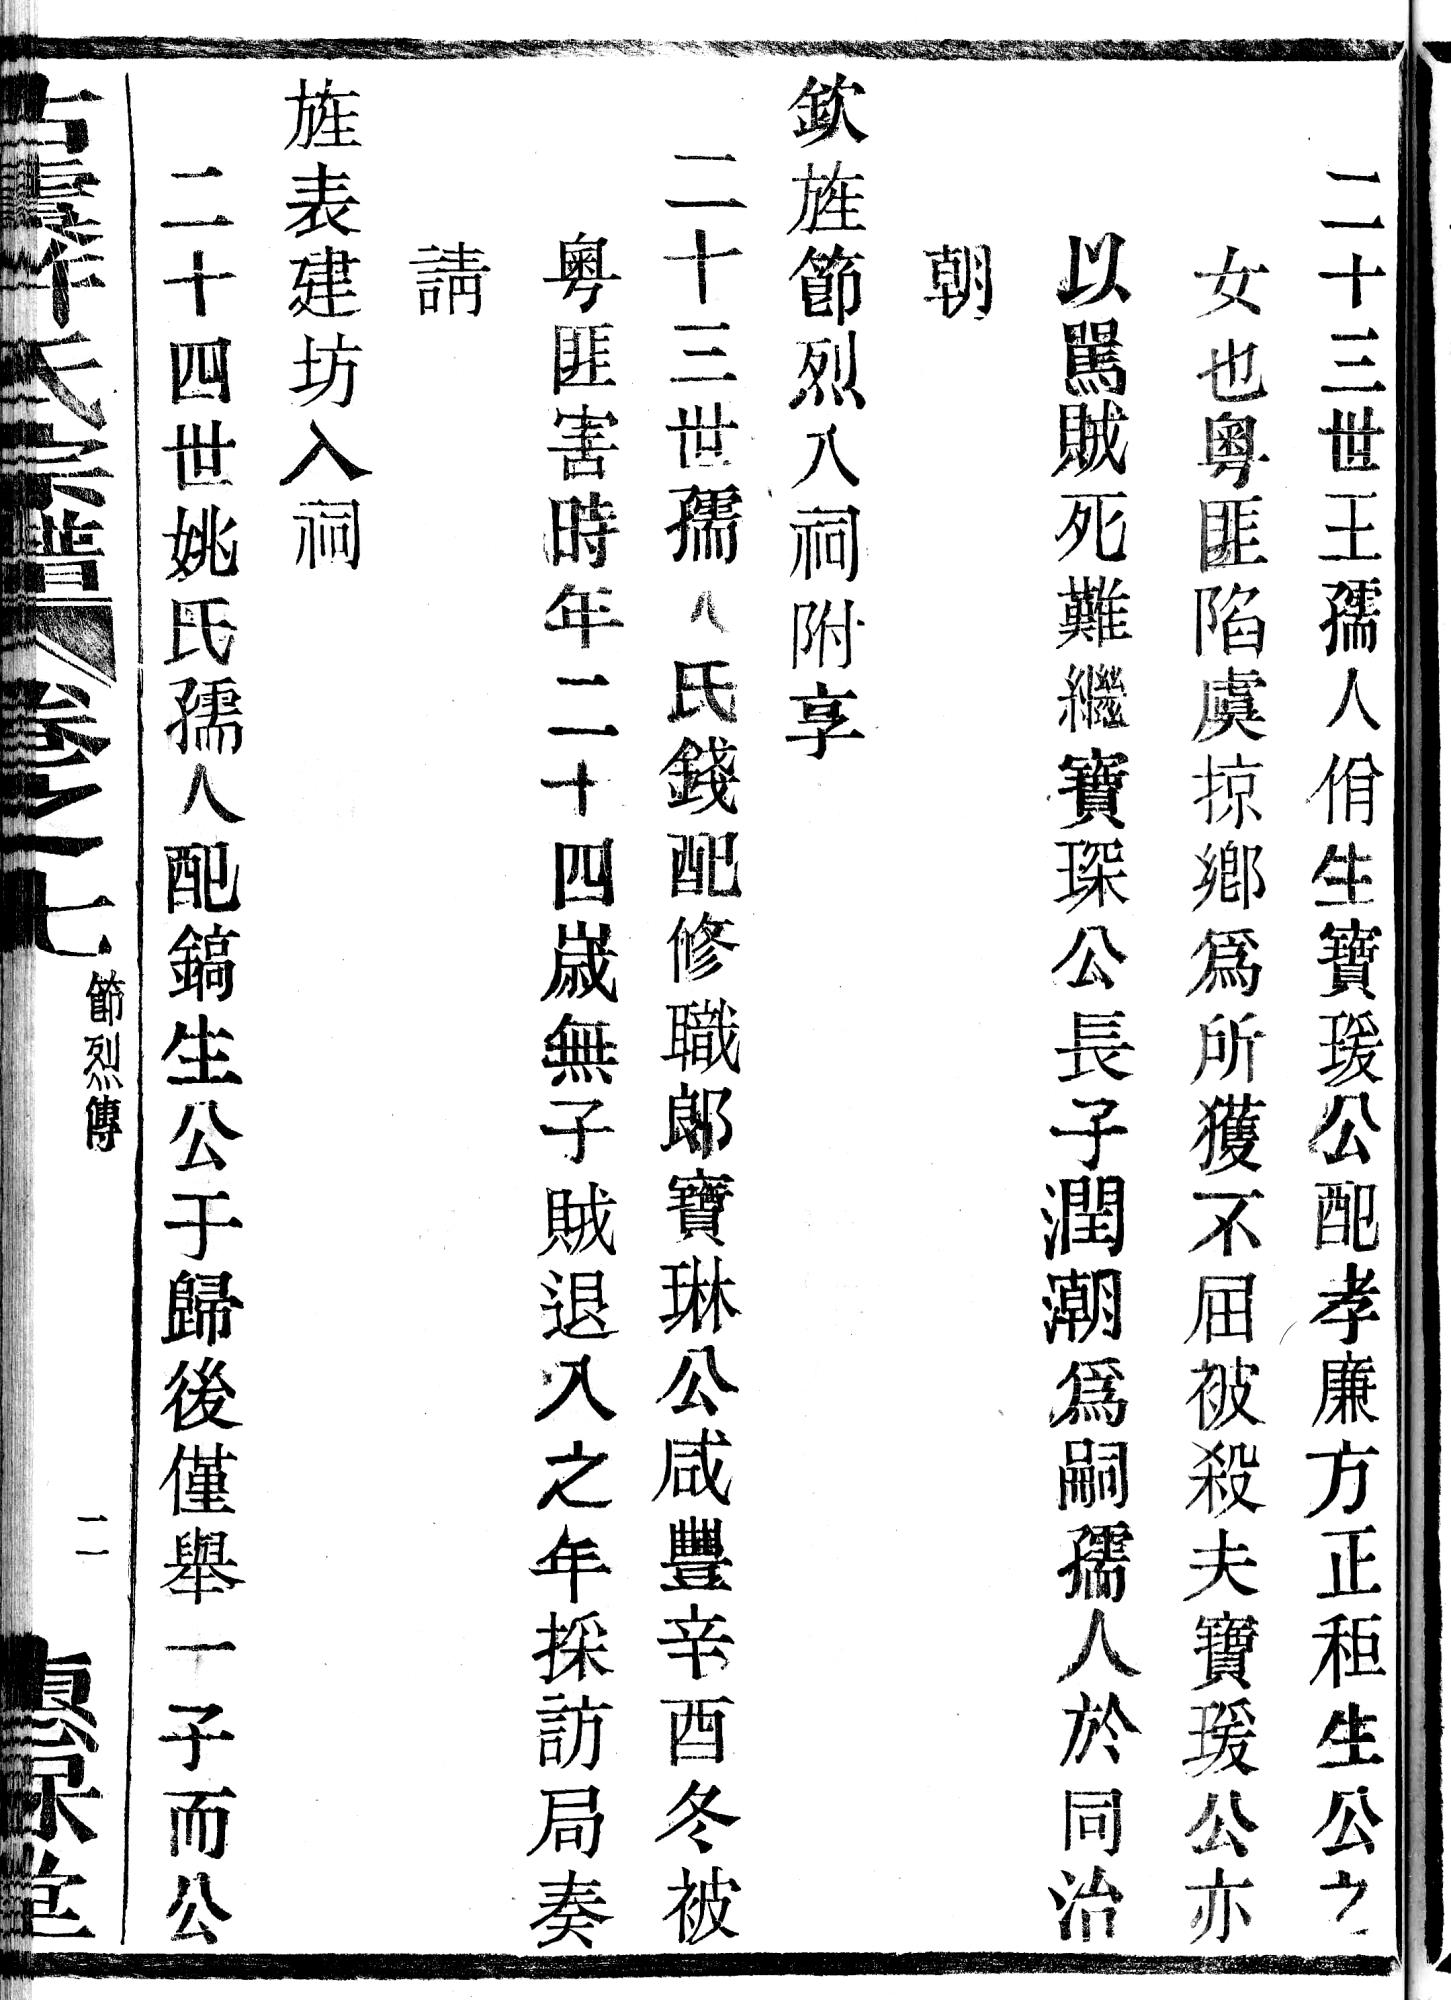 二十三世王孺人佾生寶瑗公配孝廉方正秬生公之
女也粵匪陷虞掠鄉爲所獲不屈被殺夫寶瑗公亦
以罵賊死難繼寶琛公長子潤潮爲嗣孺人於同治
朝
欽旌節烈入祠附享
二十三世孺人氏錢配修職郎寶琳公咸豐辛酉冬被
粵匪害時年二十四歲無子賊退入之年採訪局奏
請
旌表建坊入祠
二十四世姚氏孺人配鎬生公于歸後僅舉一子而公
古虞 氏宗譜 卷之七 節烈傳 二 堂